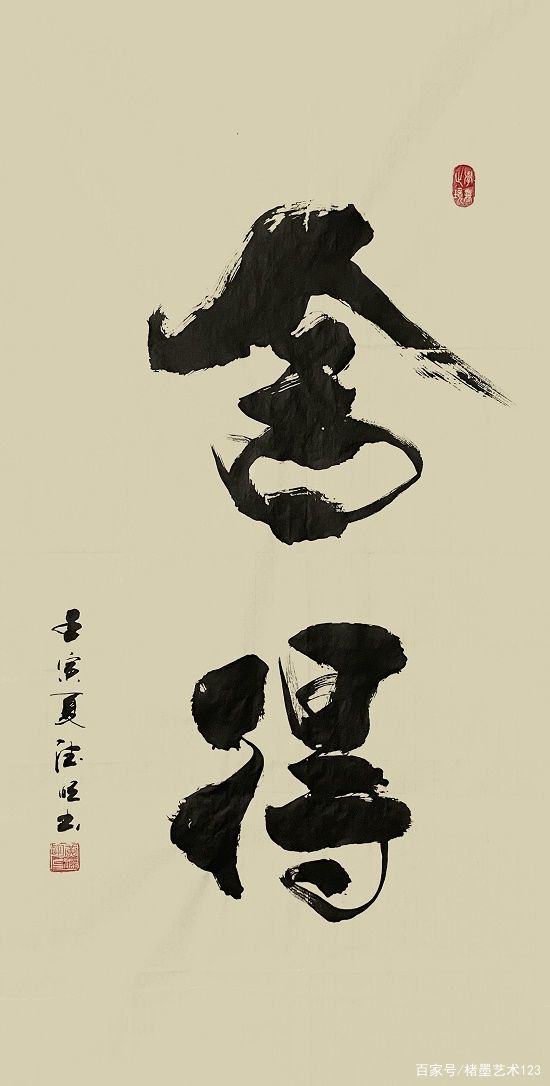 舍得
壬寅夏德旺书
百家号/楮墨艺术123